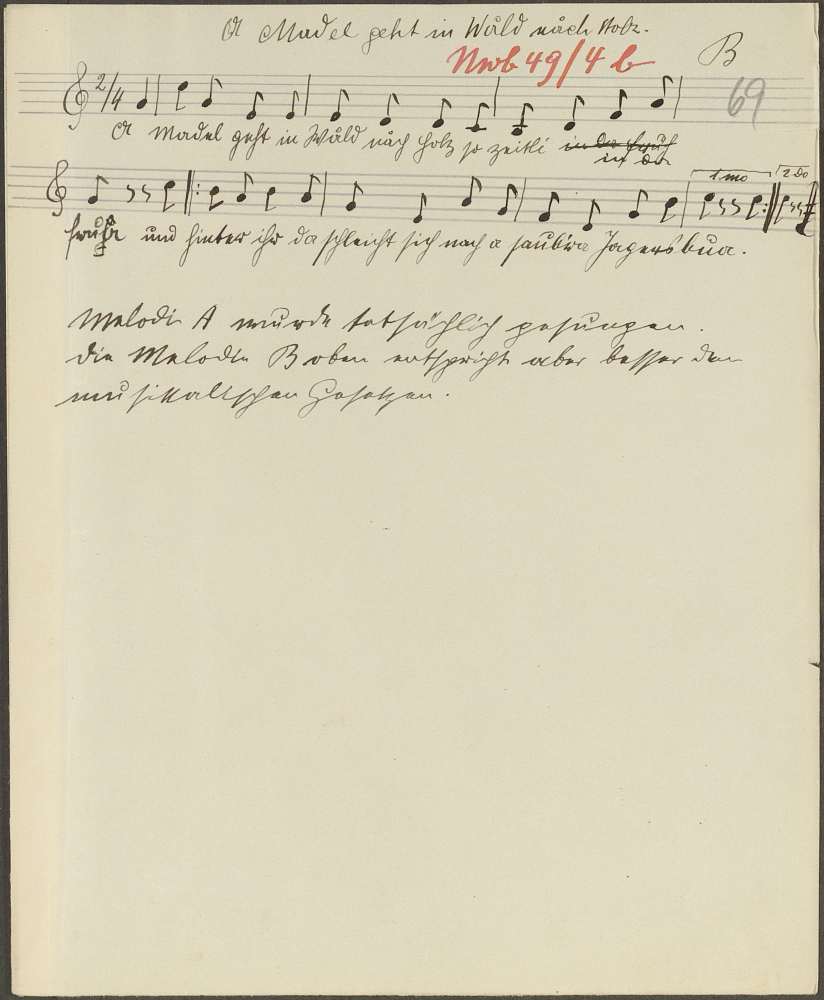 A Madel geht in Wåld nåch Holz.
Nwb 49/4 b
B
69
2/4
A Madel geht in Wåld nåch Holz so zeitli in da fruh
in da
1mo 2do
fruha und hinter ihr da schleicht sich nach a saub'ra Jagersbua.
Melodie A wurde tatsächlich gesungen.
Die Melodie B oben entspricht aber besser den
musikalischen Gesetzen.